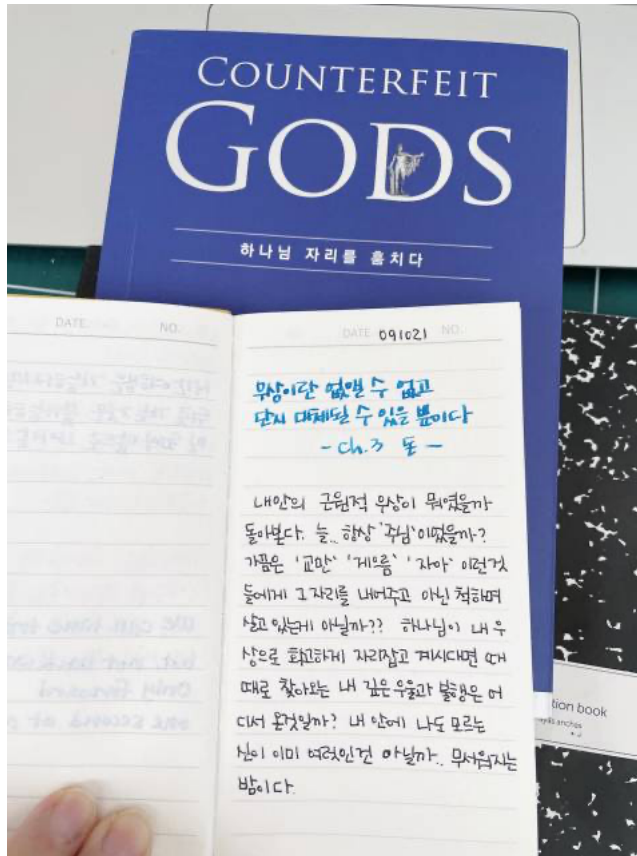 COUNTERFEIT
GODS
하나님 자리를 훔치다
DATE.
NO.
DATE.
091021
NO.
우상이란 없앨 수 없고
단지 대체될 수 있을 뿐이다
- Ch.3 돈 -
내안의 근원적 우상이 뭐였을까
돌아본다. 늘.. 항상 '주님'이었을까?
가끔은 '교만' '게으름' '자아' 이런것
들에게 그자리를 내어주고 아닌 척하며
살고있는게 아닐까?? 하나님이 내 우
상으로 확고하게 자리잡고 계시다면 때
때로 찾아오는 내 깊은 우울과 불행은 어
디서 온것일까? 내 안에 나도 모르는
신이 이미 여럿인건 아닐까.. 무서워지는
밤이다.
tion book